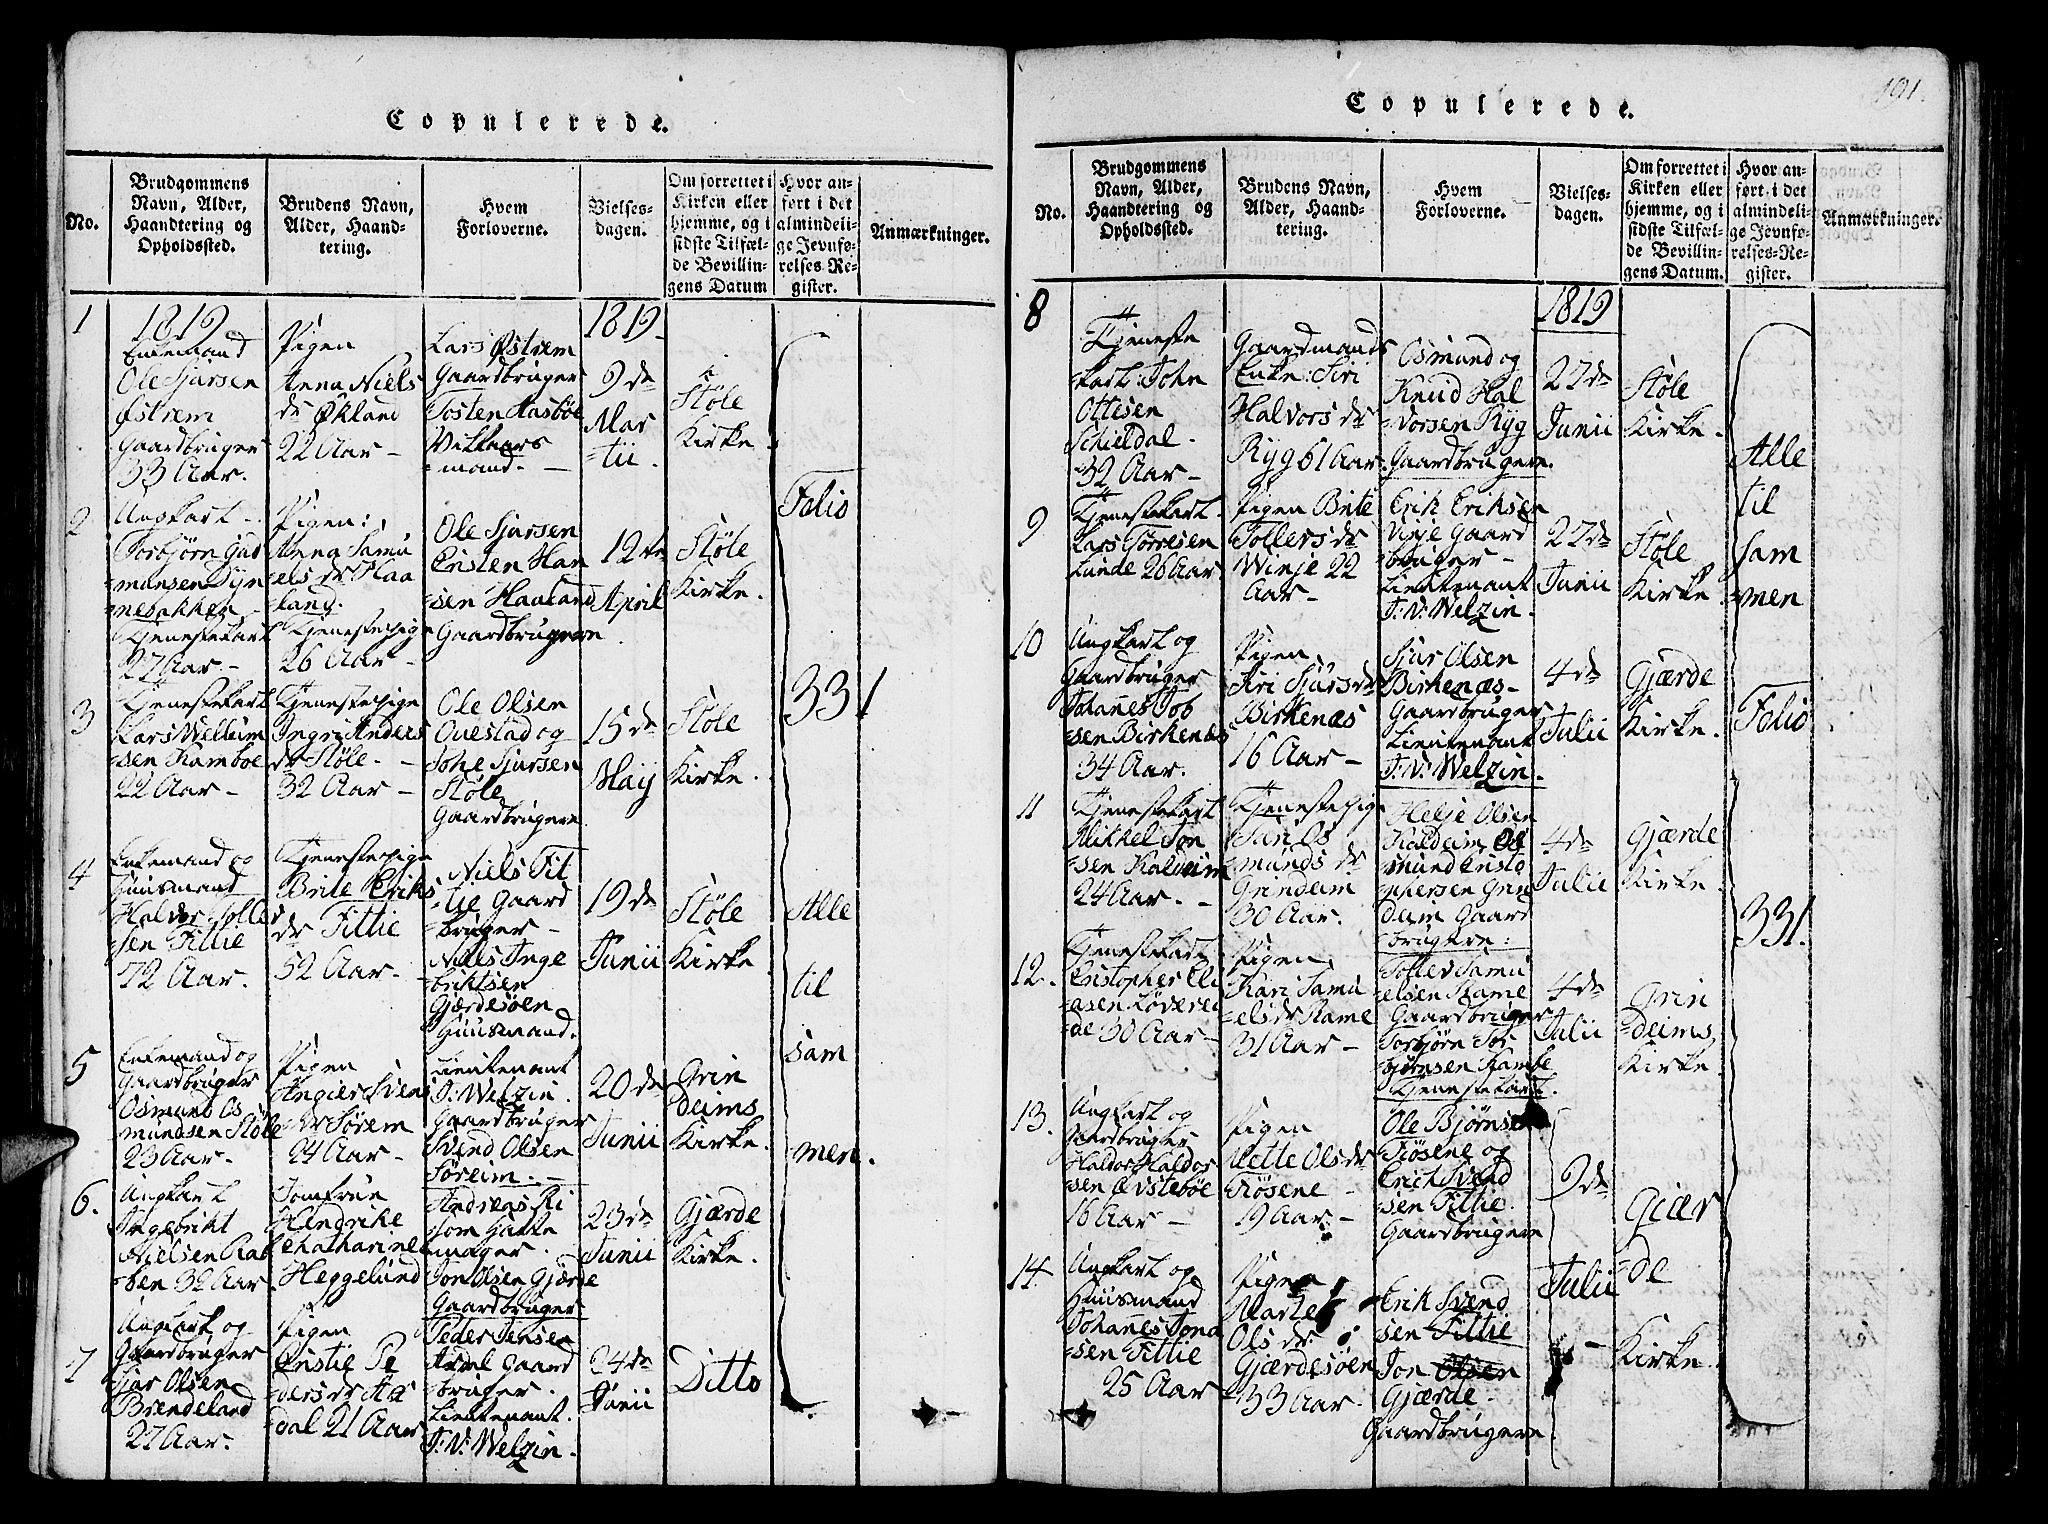 Copulerede.
No.
Brudgommens
Navn, Alder,
Haandtering og
Opholdssted.
Brudens Navn,
Alder, Haand-
tering.
Hvem
Forloverne.
Vielses-
dagen.
Om forrettet i
Kirken eller
hjemme, og i
sidste Tilfæl-
de Bevillin-
gens Datum
Hvor an-
ført i det
almindeli-
ge Jevnfø-
relses-Re-
gister.
Anmærkninger.
1
1819
Enkemand
Ole Sjursen
Østrem
Gaardbruger
33 Aar.
Pigen
Anna Niels
dr Økland
22 Aar -
Lars Østrem
Gaardbruger
Tosten Aasbøe
Vilkaars
=mand. -
1819
9de
Mar
=tii.
Støle
Kirke.
2
Ungkarl -
Torbjørn Gud
=munsen Dyn
=nesakken -
Tjenestekarl
27 Aar. -
Pigen:
Anna Samu
els dr Haa
land.
Tjenestepige
26 Aar -
Ole Sjursen
Cristen Han
=sen Haaland
Gaardbrugere.
12te
April
Støle
Kirke.
3
Tjenestekarl
Lars Wellum
sen Kamboe
22 Aar -
Tjenestepige
Ingri Anders
dr Støle. -
32 Aar -
Ole Olsen
Onestad og
Johe Sjursen
Støle
Gaardbrugere
15de
Maij
Støle
Kirke.
4
Enkemand og
Huusmand
Halvor Toller
sen Fittie
72 Aar.
Tjenestepige
Brite Eriks
dr Fittie
52 Aar -
Niels Fit
=tje Gaard
=bruger -
Niels Inge
briktsen
Gjærdesøen
Huusmand.
19de
Junii
Støle
Kirke
5
Enkemand og
Gaardbruger
Osmund Os
mundsen Støle
23 Aar -
Pigen
Angier Svens
dr Sørem
24 Aar -
Lieutenant
T. Welzin.
Gaardbruger
Svend Olsen
Søreim. -
20de
Junii
Grin
deims
Kirke.
6.
Ungkarl
Ingebrikt
Nielsen Rab
=ben 32 Aar
Jomfrue
Hendrike
Chatharine
Heggelund
Andreas Ri
som Hatte
mager.
Jon Olsen Gjærde
Gaardbruger
23de
Junii
Gjærde
Kirke.
7
Ungkarl og
Gaardbruger
Sjur Olsen
Brendeland
27 Aar.
Pigen
Cristie Pe
ders dr Aa
dal 21 Aar
Peder Jensen
Aadal Gaard
=bruger.
Lieutenant.
T: V: Welzin.
24de
Junii
Ditto
Folio
331
Alle
til
sam
men.
101.
Copulerede.
No.
Brudgommens
Navn, Alder,
Haandtering og
Opholdssted.
Brudens Navn,
Alder, Haand-
tering.
Hvem
Forloverne.
Vielses-
dagen.
Om forrettet i
Kirken eller
hjemme, og i
sidste Tilfæl-
de Bevillin-
gens Datum.
Hvor an-
ført i det
almindeli-
ge Jevnfø-
relses-Re-
gister.
Anmærkninger.
8
Tjeneste
=karl: John
Ottesen
Schieldal -
32 Aar -
Gaardmands
Enke: Siri
Halvors dr
Ryg 61 Aar.
Osmund og
Knud Hal
=vorsen Ryg
Gaardbrugere.
1819
22de
Junii
Støle
Kirke.
9
Tjenestekarl.
Lars Torresen
Lunde 26 Aar
Pigen Brite
Tollers dr
Winje 22
Aar -
Erik Eriksen
Vinje Gaard
=bruger -
Lieutenant
T: V: Welzin.
22de
Junii
Støle
Kirke.
10
Ungkarl og
Gaardbruger
Johanes Job
sen Birkenæs
34 Aar.
Pigen,
Siri Sjurs dr
Birkenæs
16 Aar -
Sjur Olsen
Birkenæs -
Gaardbruger
Lieutenant
T: V: Welzin.
4de
Julii
Gjærde
Kirke.
11
Tjenestekarl
Mikkel Jon
=sen Kaldeim
24 Aar. -
Tjenestepige
Siri Os
munds dr
Grindeim
30 Aar.
Helje Olsen
Kaldeim Os
mund Cristo
phersen Grin
deim Gaard
=brugere:
4de
Julii
Gjærde
Kirke.
12.
Tjenestekarl
Cristopher Eli
=asen Løvere
=de 30 Aar -
Pigen,
Kari Samu
=els dr Rame
31 Aar -
Tollev Samu
=elsen Rame
Gaardbruger
Torbjørn Tor
=bjørnsen Kambe
Tjenestekarl.
4de
Julii
Grin
=deims
Kirke.
13.
Ungkarl og
Gaardbruger
Haldor Haldor
sen Evstebøe
16 Aar -
Pigen
Mette Ols dr
Fiøsene -
19 Aar. -
Ole Bjørnsen
Fiøsene og
Erick Svend
sen Fittie.
Gaardbrugere
9de
Julii
-
Gjær
=de
Kirke.
14.
Ungkarl og
Huusmand
Johanes Jona
sen Fittie
25 Aar
Pigen
Marte
Ols dr
Gjærdesøen
33 Aar.
Erik Svend
sen Fittie
Jon Olsen
Gjærde.
Gaardbrugere.
Alle
til
sam
=men
Folio
331.